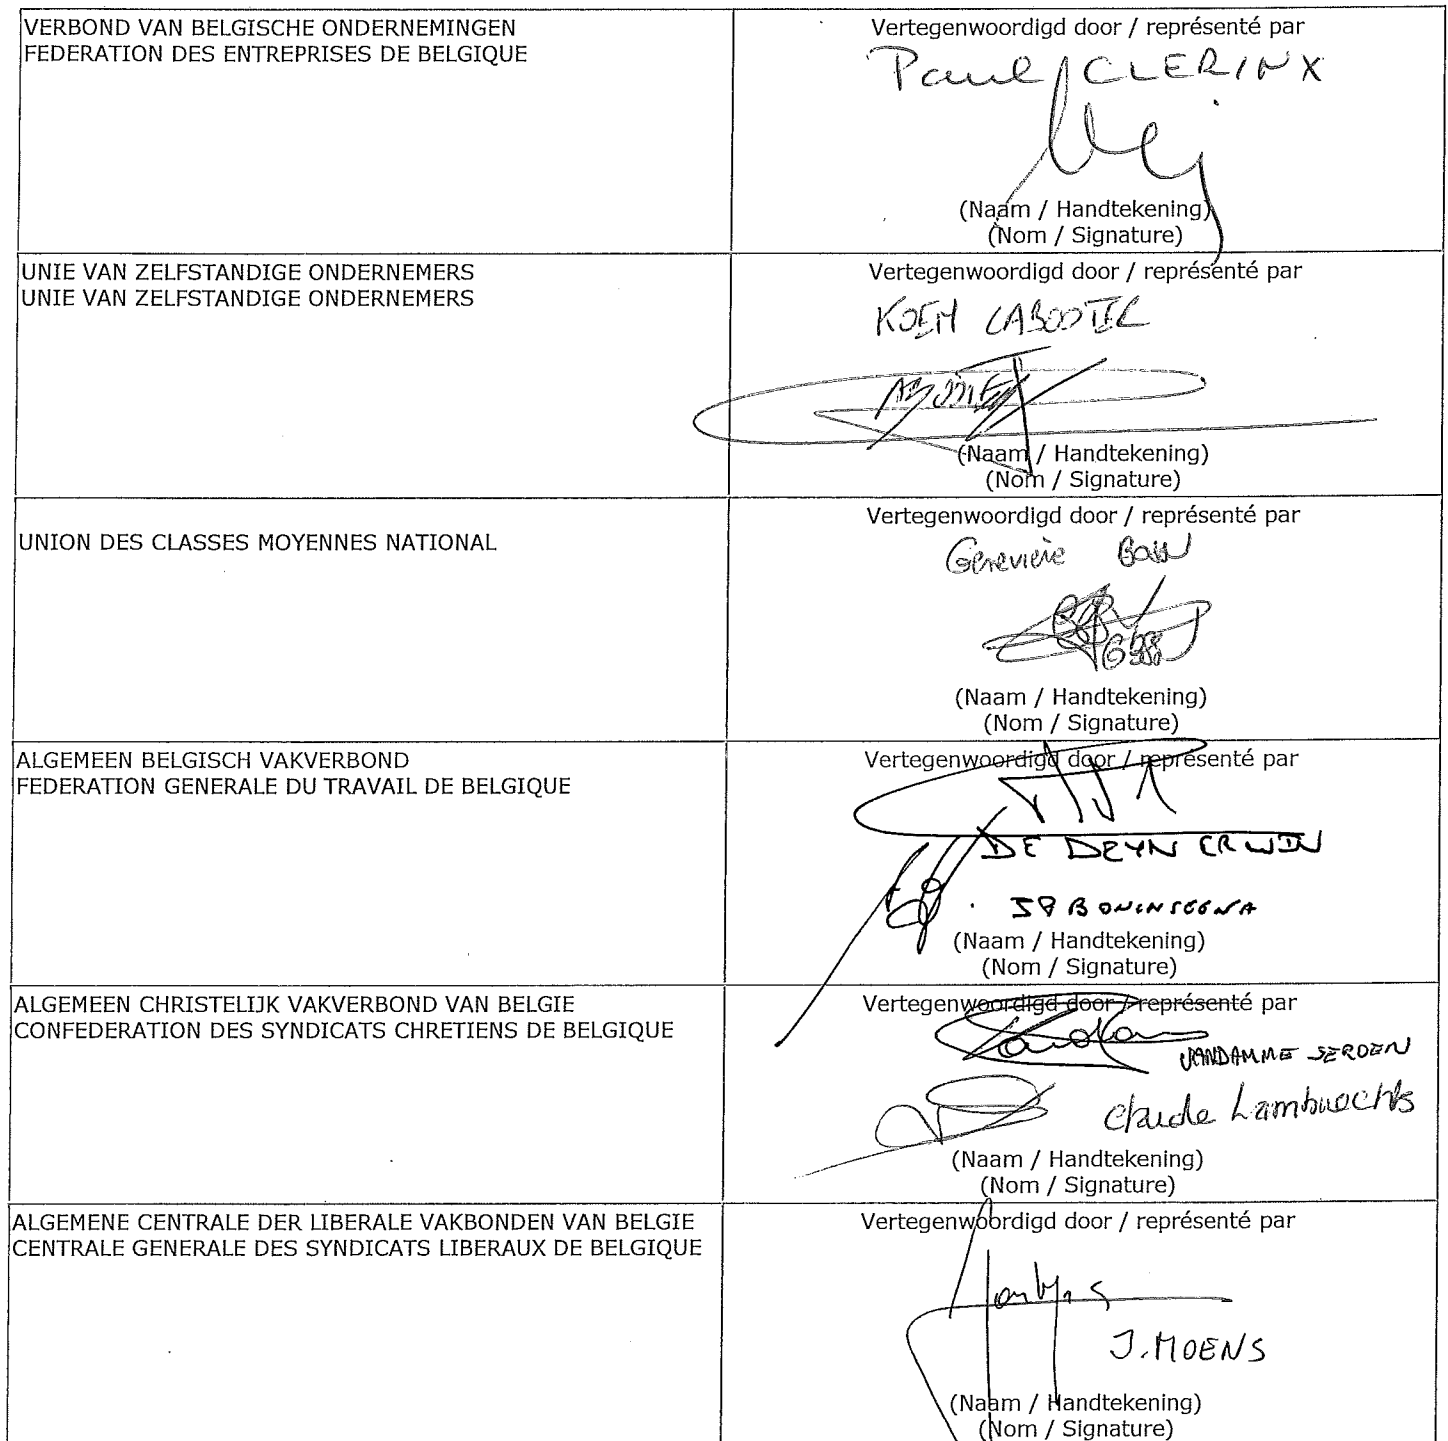 VERBOND VAN BELGISCHE ONDERNEMINGEN
FEDERATION DES ENTREPRISES DE BELGIQUE
Vertegenwoordigd door / représenté par
Paul CLERINX
(Naam / Handtekening)
(Nom / Signature)
UNIE VAN ZELFSTANDIGE ONDERNEMERS
UNIE VAN ZELFSTANDIGE ONDERNEMERS
Vertegenwoordigd door / représenté par
KOEN CABOOTER
(Naam / Handtekening)
(Nom / Signature)
UNION DES CLASSES MOYENNES NATIONAL
Vertegenwoordigd door / représenté par
Geneviève
(Naam / Handtekening)
(Nom / Signature)
ALGEMEEN BELGISCH VAKVERBOND
FEDERATION GENERALE DU TRAVAIL DE BELGIQUE
Vertegenwoordigd door / représenté par
DE DEYN ERWIN
BONINSEGNA
(Naam / Handtekening)
(Nom / Signature)
ALGEMEEN CHRISTELIJK VAKVERBOND VAN BELGIE
CONFEDERATION DES SYNDICATS CHRETIENS DE BELGIQUE
Vertegenwoordigd door / représenté par
VANDAMME JEROEN
Claude Lambrechts
(Naam / Handtekening)
(Nom / Signature)
ALGEMENE CENTRALE DER LIBERALE VAKBONDEN VAN BELGIE
CENTRALE GENERALE DES SYNDICATS LIBERAUX DE BELGIQUE
Vertegenwoordigd door / représenté par
J. MOENS
(Naam / Handtekening)
(Nom / Signature)